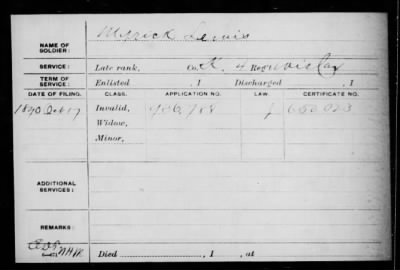 Merrick Lewis
NAME OF SOLDIER:
SERVICE: Late rank, Co. K. 4 Reg't Wis Cav
TERM OF SERVICE: Enlisted , 1 Discharged , 1
DATE OF FILING. CLASS. APPLICATION NO. LAW. CERTIFICATE NO.
1890 Invalid, 906,788
Widow,
Minor,
ADDITIONAL SERVICES:
REMARKS:
Died , 1 , at